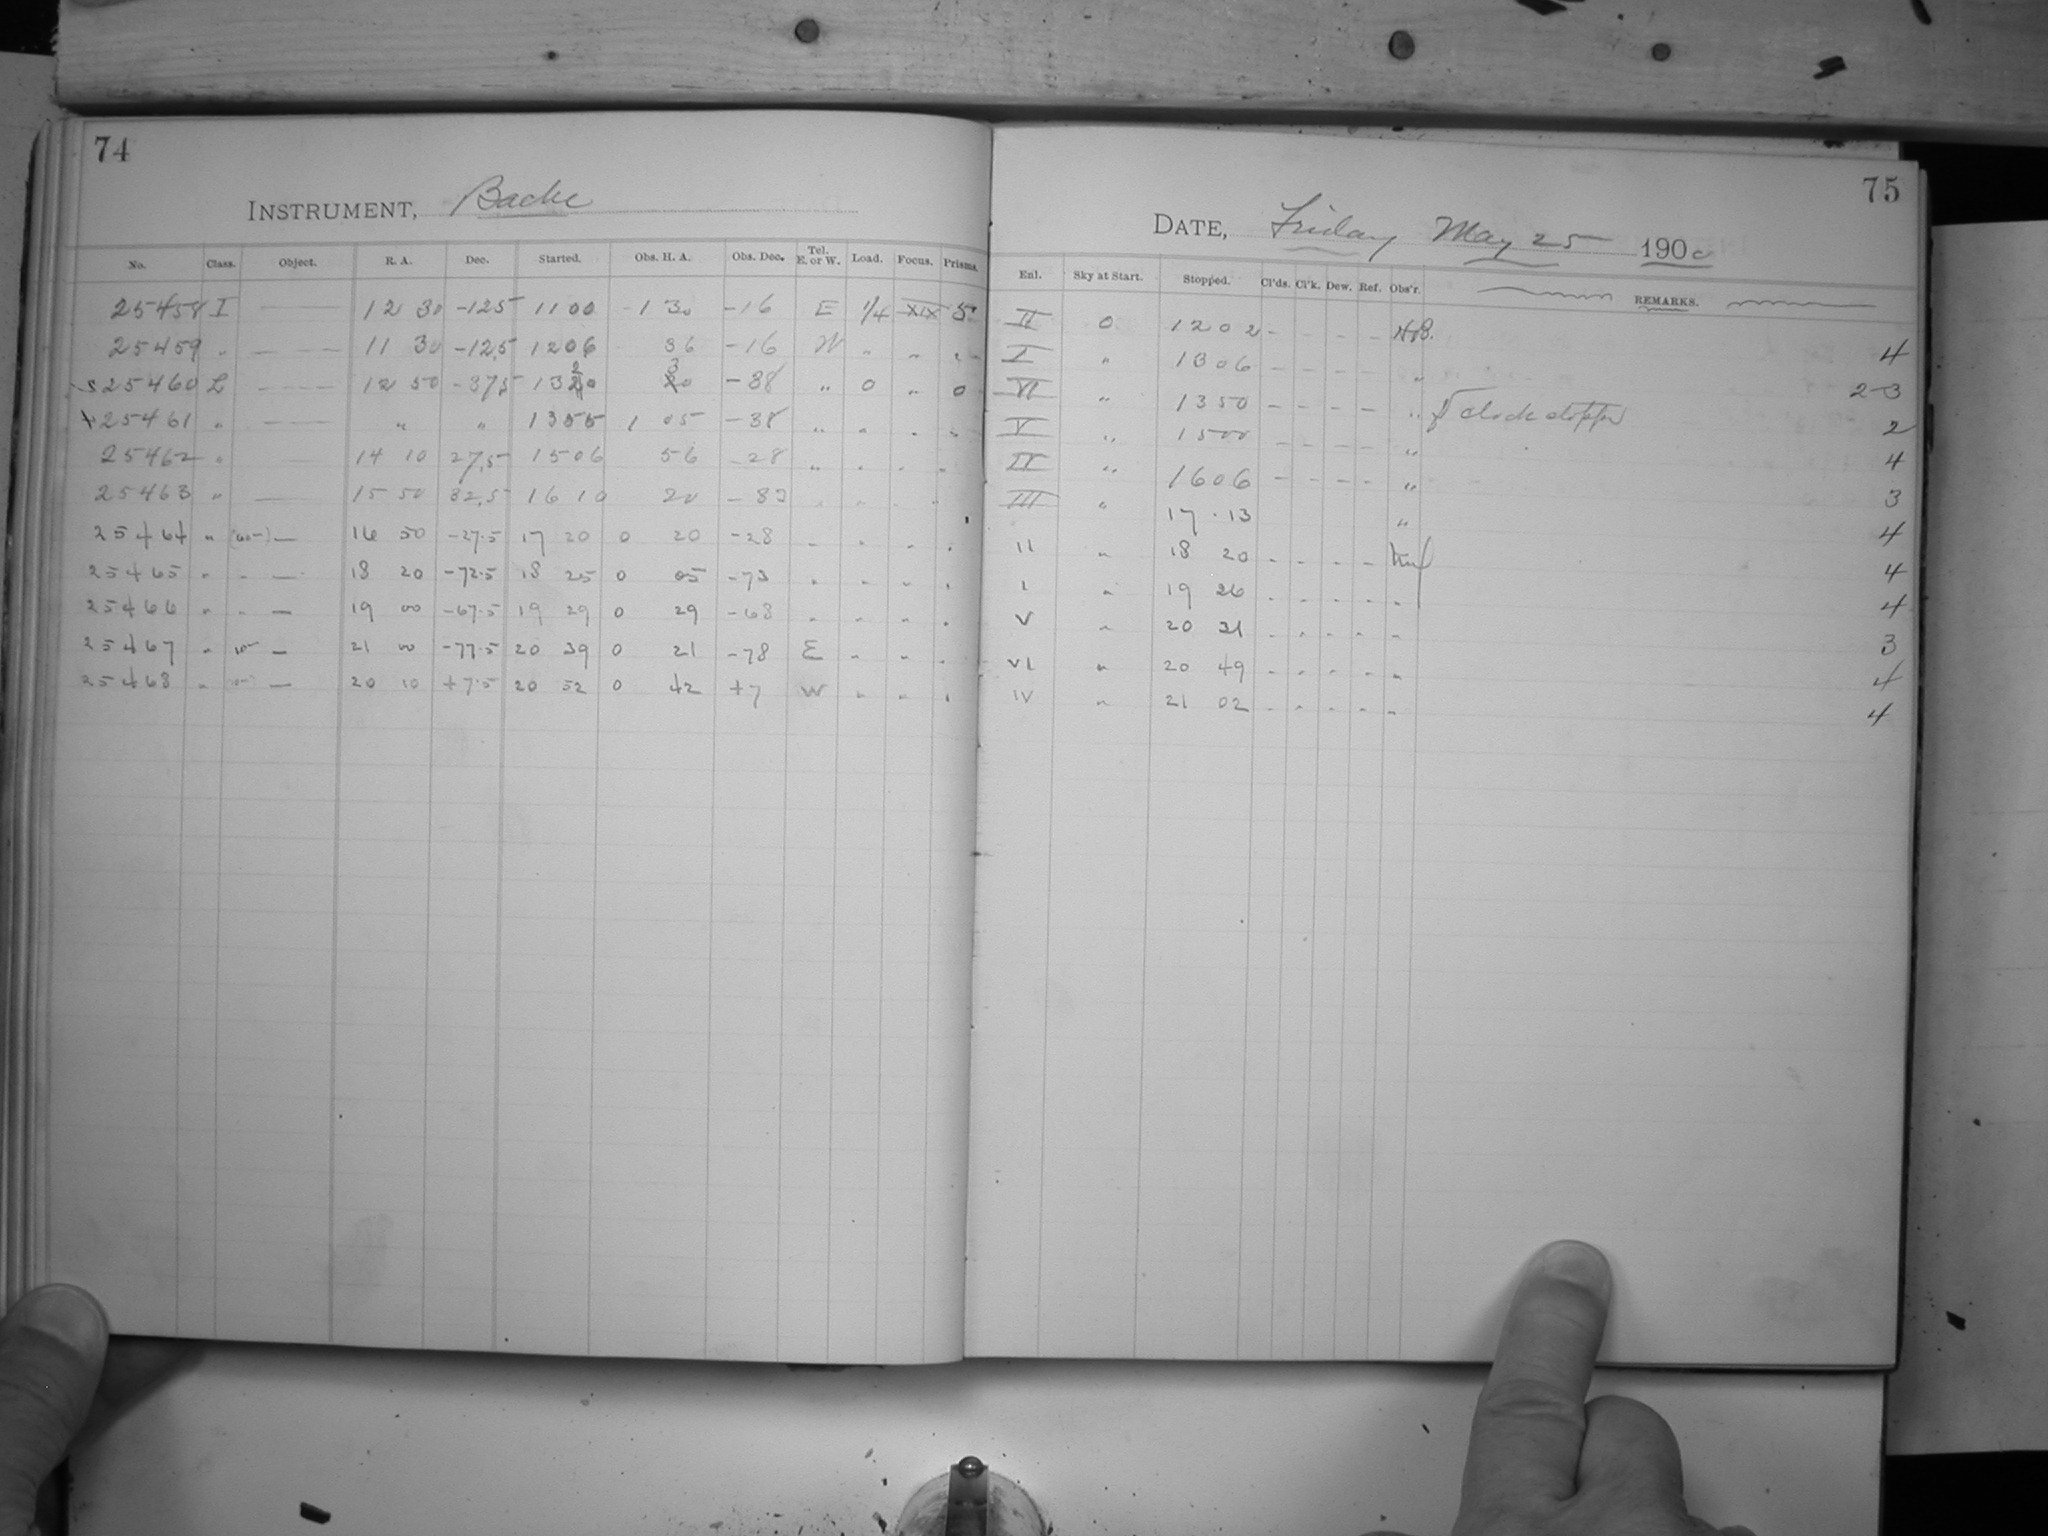 74
INSTRUMENT, Bache
No. Class. Object. R. A. Dec. Started. Obs. H. A. Obs. Dec. Tel. E. or W. Load. Focus. Prisms.
25458 I — 12 30 -12.5 11 00 -1 30 -16 E 1/4 XIX 5
25459 " — 11 30 -12.5 12 06 36 -16 W " " "
25460 L — 12 50 -37.5 13 20 30 -38 " 0 " 0
25461 " — " " 13 55 1 05 -38 " " " "
25462 " — 14 10 27.5 15 06 56 -28 " " " "
25463 " — 15 50 32.5 16 10 20 -33 " " " "
25464 " (60m) — 16 50 -27.5 17 20 0 20 -28 " " " "
25465 " " — 18 20 -72.5 18 25 0 05 -73 " " " "
25466 " " — 19 00 -67.5 19 29 0 29 -68 " " " "
25467 " 10m — 21 00 -77.5 20 39 0 21 -78 E " " "
25468 " — 20 10 +7.5 20 52 0 42 +7 W " " "
75
DATE, Friday May 25 1900
Enl. Sky at Start. Stopped. Cl'ds. Cl'k. Dew. Ref. Obs'r. REMARKS.
II 0 12 02 - - - - 4
I " 13 06 - - - - " 2-3
VI " 13 50 - - - - " clock stopped 2
V " 15 00 - - - - " 4
II " 16 06 - - - - " 3
III " 17 13 " 4
II " 18 20 - - - - 4
I " 19 26 - - - - " 4
V " 20 31 - - - - " 3
VI " 20 49 - - - - " 4
IV " 21 02 - - - - " 4